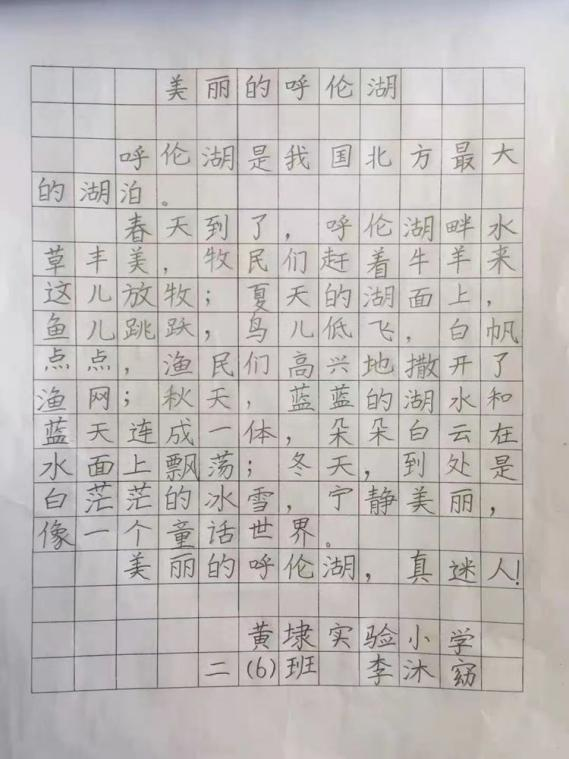 美丽的呼伦湖
呼伦湖是我国北方最大
的湖泊。
春天到了，呼伦湖畔水
草丰美，牧民们赶着牛羊来
这儿放牧；夏天的湖面上，
鱼儿跳跃，鸟儿低飞，白帆
点点，渔民们高兴地撒开了
渔网；秋天，蓝蓝的湖水和
蓝天连成一体，朵朵白云在
水面上飘荡；冬天，到处是
白茫茫的冰雪，宁静美丽，
像一个童话世界。
美丽的呼伦湖，真迷人！
黄埭实验小学
二(6)班 李沐窈